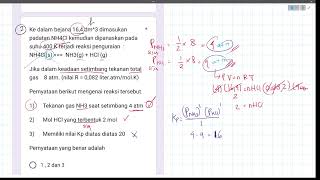 Ke dalam bejana 16,4 dm^3 dimasukan
padatan NH4Cl kemudian dipanaskan pada
suhu 400 K terjadi reaksi penguraian :
NH4Cl(s) >== NH3(g) + HCl (g)
Jika dalam keadaan setimbang tekanan total
gas 8 atm. (nilai R = 0,082 liter.atm/mol.K)
Pernyataan berikut mengenai reaksi tersebut.
1) Tekanan gas NH3 saat setimbang 4 atm
2) Mol HCl yang terbentuk 2 mol
3) Memiliki nilai Kp diatas diatas 20
Pernyataan yang benar adalah
1 , 2 dan 3
P NH3 = 1/2 × 8 = 4 atm
= 1/2 × 8 =
PV = nRT
2 = nHCl
Kp =
1
4 . 4 = 16